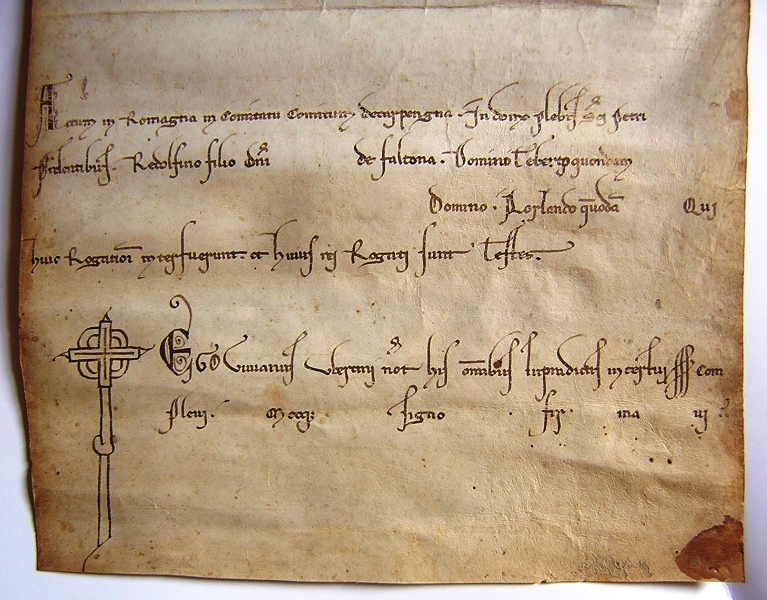 Actum in Romagna in Comitatu Comitum decarpengna. In domo plebis Sci Petri
Presentibus. Redolfino filio Dni de faltona. Domino Teberto quondam
Domino. Rorlando quodã Qui
huic Rogationi interfuerunt. et huius rei Rogati sunt Testes.
Ego Vivianus Ubertini not his omnibus supradictis interfui SSS com
plevi. Meoq; signo fir ma vi